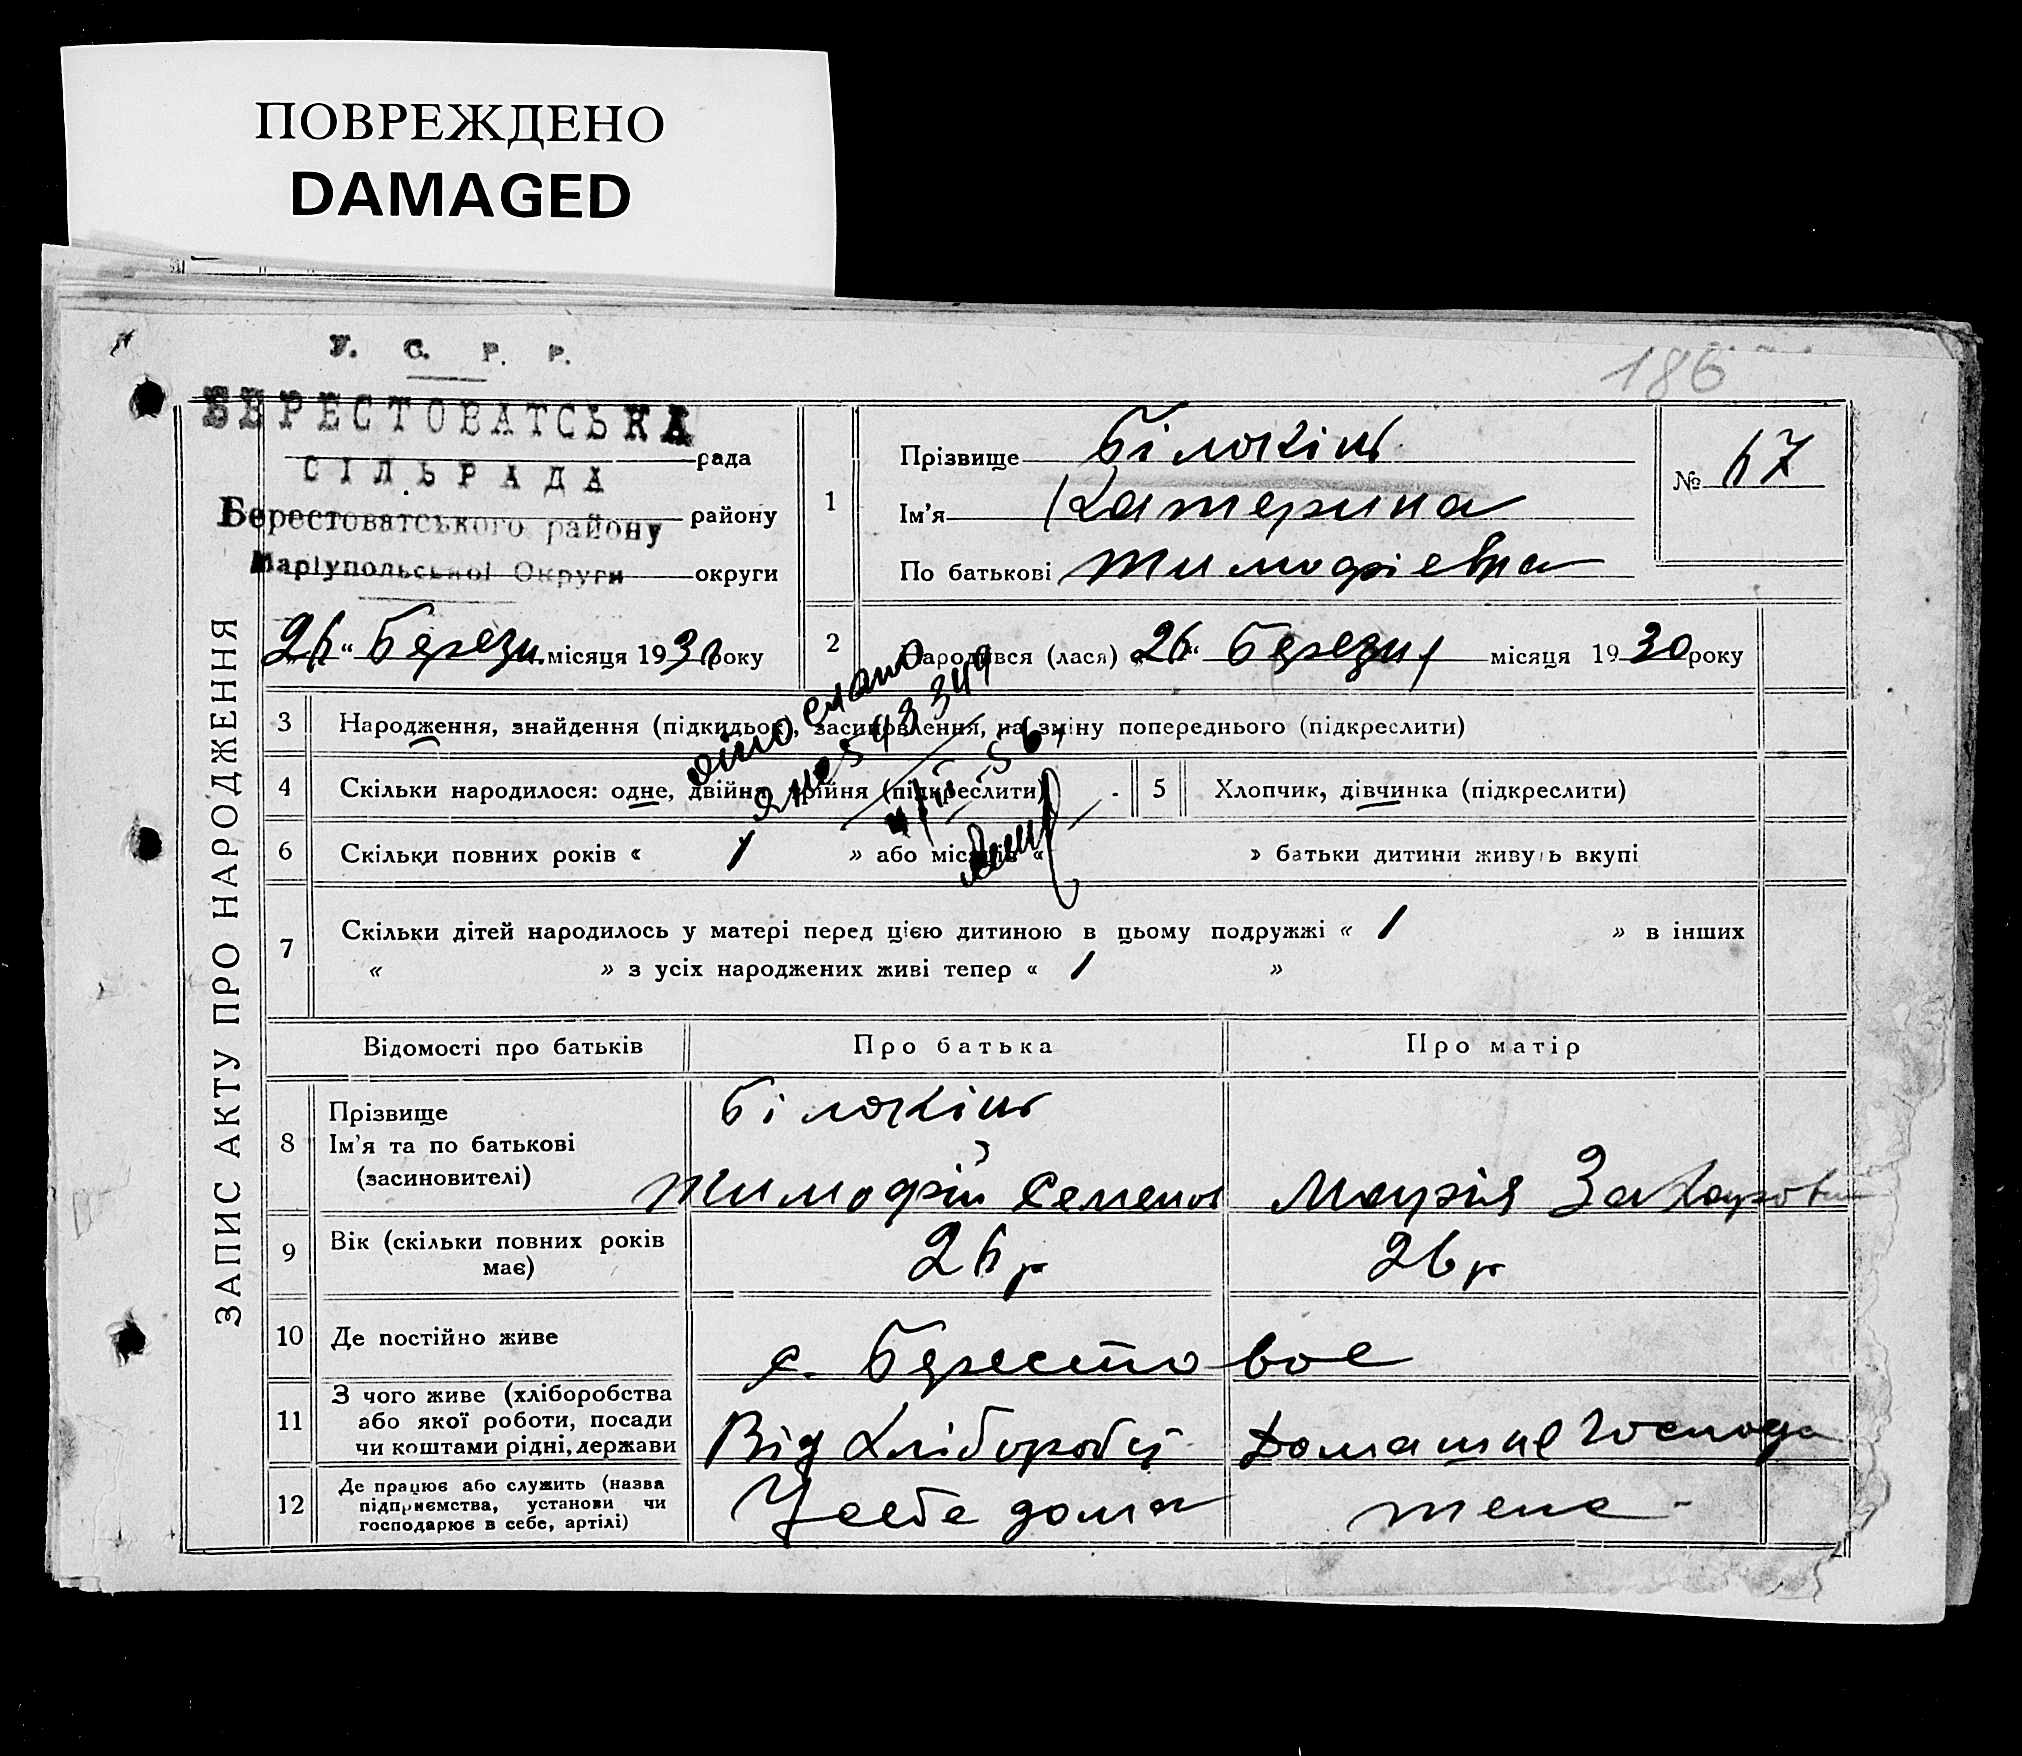 ПОВРЕЖДЕНО
DAMAGED
186
У. С. Р. Р.
БЕРЕСТОВАТСЬКА
рада
СІЛЬРАДА
Берестоватського району району
Маріупольської Округи округи
26 " Березн місяця 1930 року
ЗАПИС АКТУ ПРО НАРОДЖЕННЯ
1
Прізвище Білокінь
Ім'я Катерина
По батькові Тимофіевна
№ 67
2 Народився (лася) « 26 " Березня місяця 1930 року
3 Народження, знайдення (підкидьок), засиновлення, на зміну попереднього (підкреслити)
4 Скільки народилося: одне, двійня, трійня (підкреслити)
5 Хлопчик, дівчинка (підкреслити)
6 Скільки повних років « 1 » або місяців « » батьки дитини живуть вкупі
7 Скільки дітей народилось у матері перед цією дитиною в цьому подружжі « 1 » в інших
« » з усіх народжених живі тепер « 1 »
Відомості про батьків Про батька Про матір
8 Прізвище
Ім'я та по батькові
(засиновителі)
Білокінь
Тимофій Семенов Марія Захаровн
9 Вік (скільки повних років
має)
26 р 26 р
10 Де постійно живе
с. Берестовое
11 З чого живе (хліборобства
або якої роботи, посади
чи коштами рідні, держави
Від Хліборобії Домашне Господа
12 Де працює або служить (назва
підприємства, установи чи
господарює в себе, артілі)
У себе дома теж